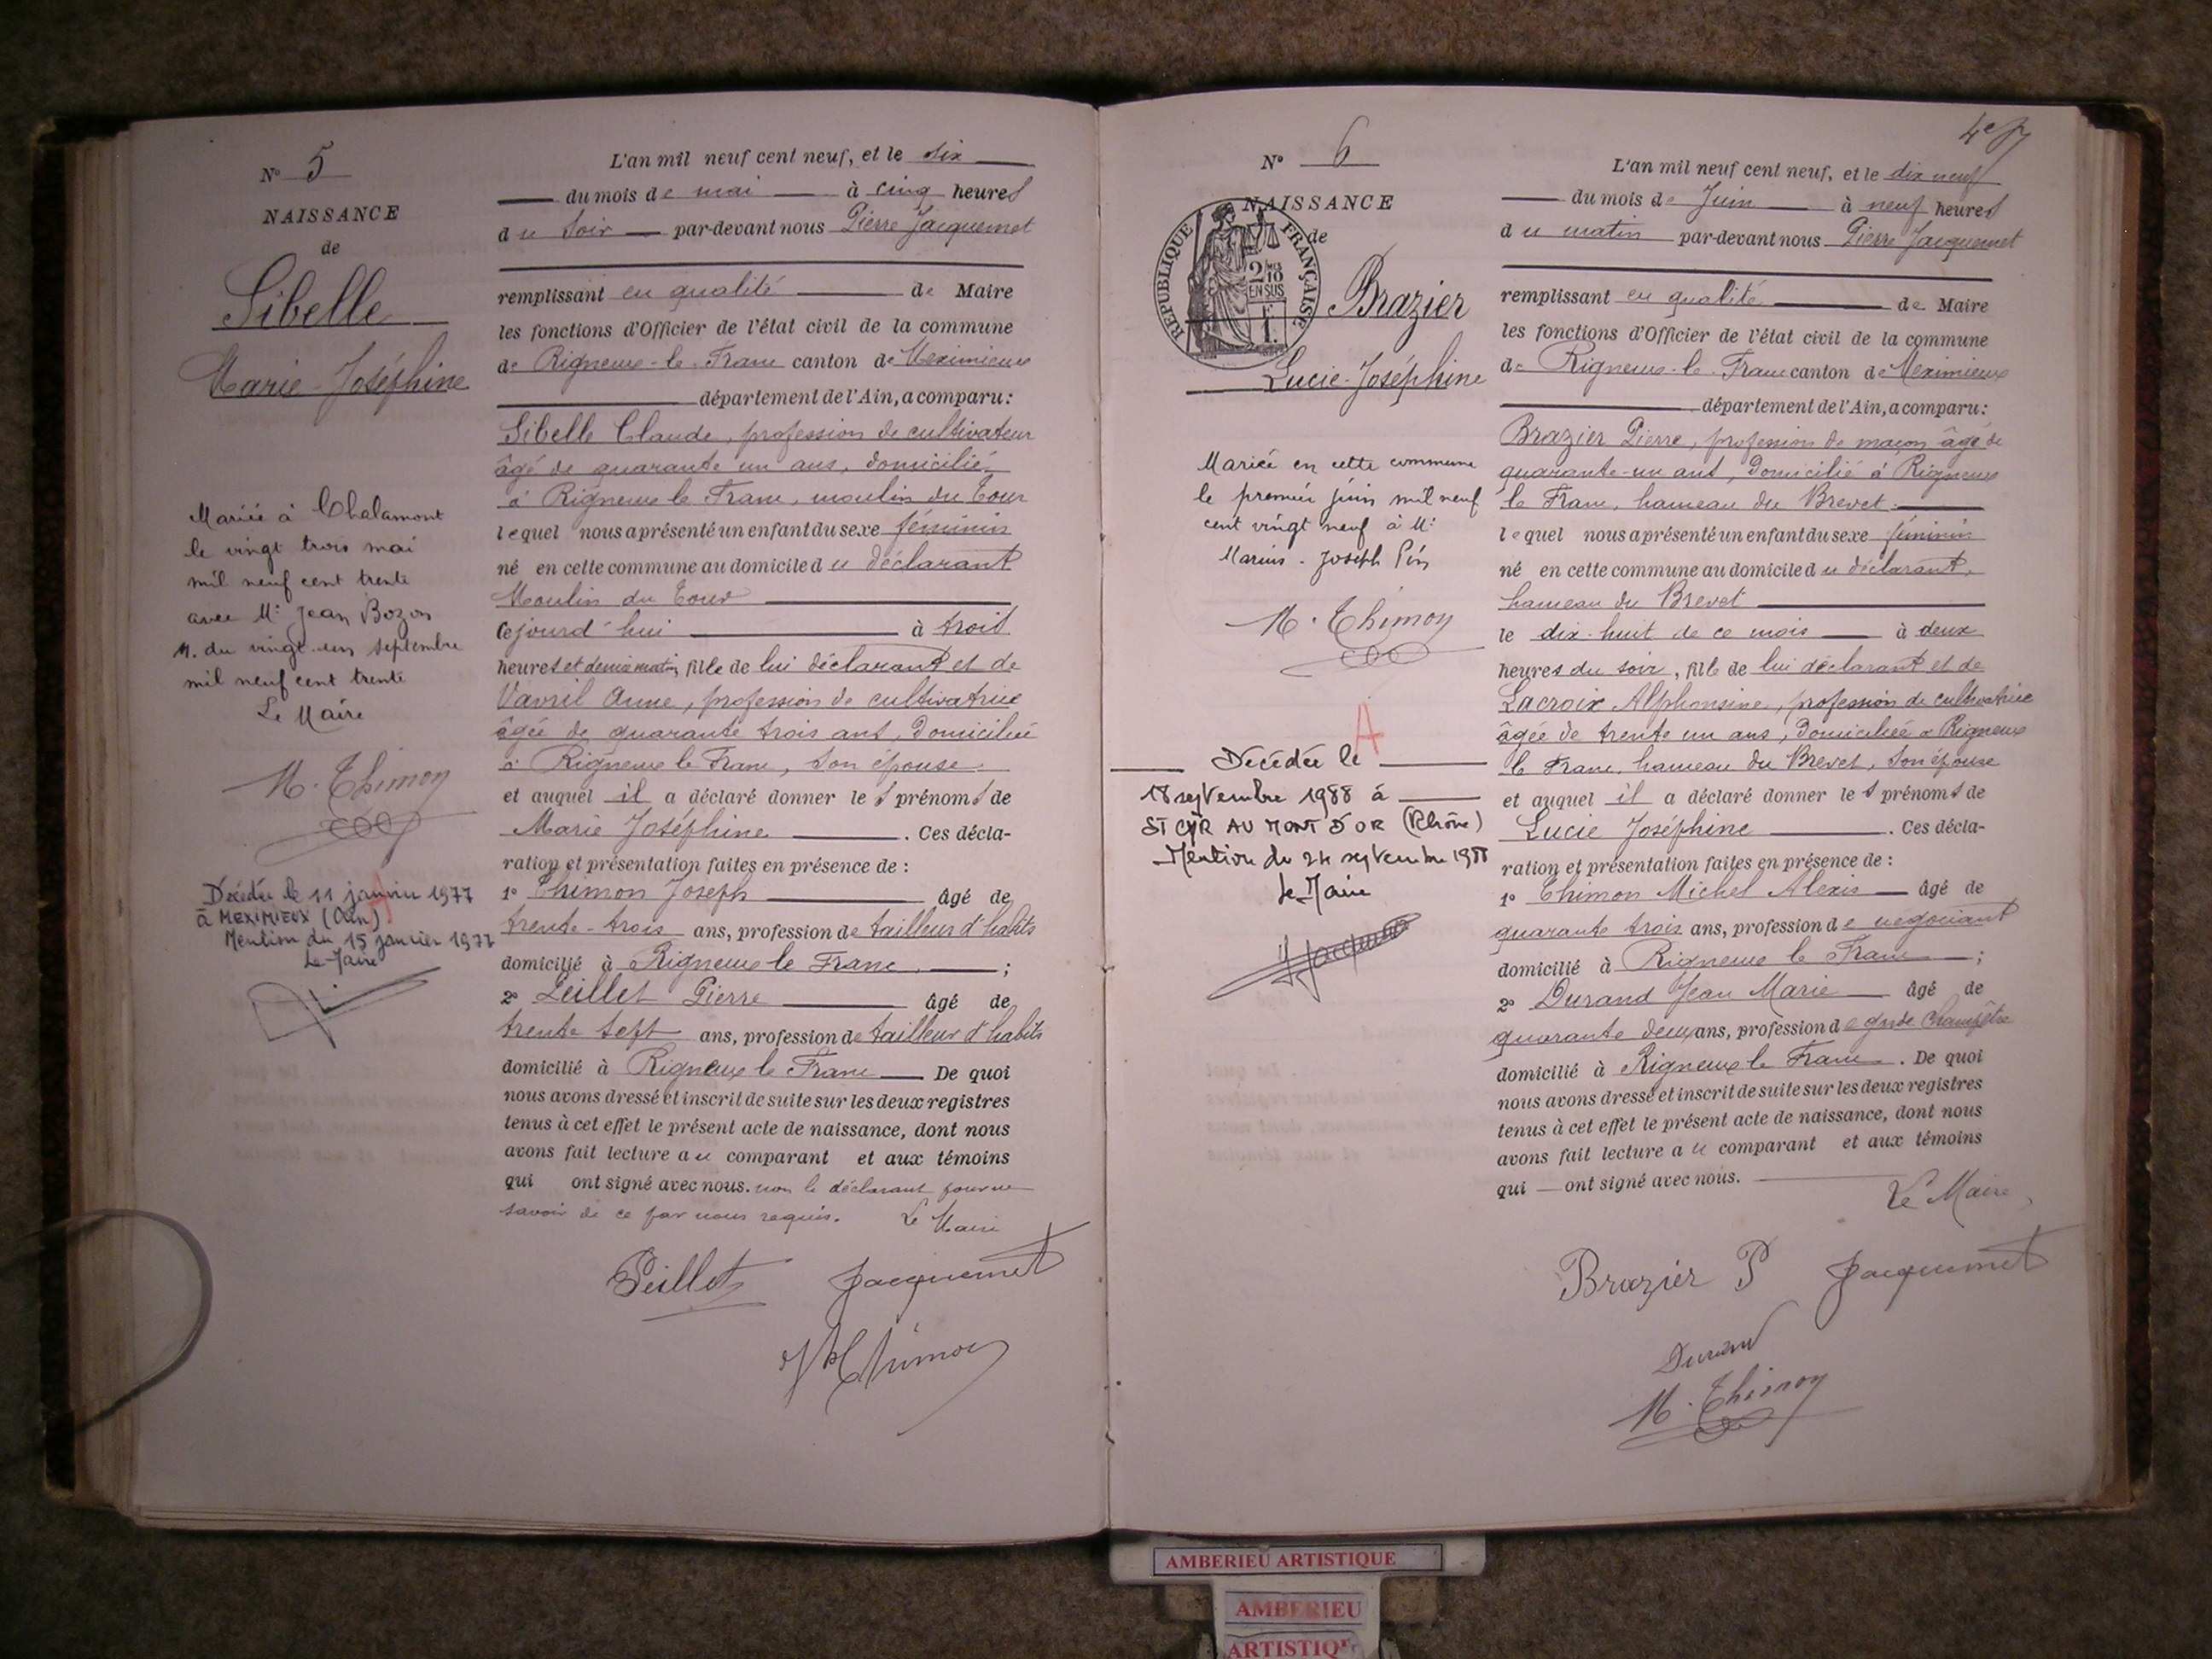 N° 5
NAISSANCE
de
Sibelle
Marie-Joséphine
Mariée à Chalamont
le vingt trois mai
mil neuf cent trente
avec Mr Jean Bozon
M. du vingt-un septembre
mil neuf cent trente
Le Maire
M. Thimon
Décédée le 11 janvier 1977
à MEXIMIEUX (Ain)
Mention du 15 janvier 1977
Le Maire
L'an mil neuf cent neuf, et le six
du mois de mai à cinq heures
du soir par-devant nous Pierre Jacquemet
remplissant en qualité de Maire
les fonctions d'Officier de l'état civil de la commune
de Rigneux-le-Franc canton de Meximieux
département de l'Ain, a comparu :
Sibelle Claude, profession de cultivateur
âgé de quarante un ans, domicilié
à Rigneux le Franc, moulin du Tour
lequel nous a présenté un enfant du sexe féminin
né en cette commune au domicile du déclarant
Moulin du Tour
Cejourd'hui à trois
heures et demie matin, fille de lui déclarant et de
Vavril Anne, profession de cultivatrice
âgée de quarante trois ans, domiciliée
à Rigneux le Franc, son épouse.
et auquel il a déclaré donner les prénoms de
Marie Joséphine . Ces décla-
ration et présentation faites en présence de :
1° Thimon Joseph âgé de
trente-trois ans, profession de tailleur d'habits
domicilié à Rigneux le Franc. ;
2° Peillet Pierre âgé de
trente sept ans, profession de tailleur d'habits
domicilié à Rigneux le Franc De quoi
nous avons dressé et inscrit de suite sur les deux registres
tenus à cet effet le présent acte de naissance, dont nous
avons fait lecture au comparant et aux témoins
qui ont signé avec nous. non le déclarant pour ne
savoir de ce par nous requis. Le Maire
Peillet Jacquemet
J Thimon
4e
N° 6
NAISSANCE
de
RÉPUBLIQUE FRANÇAISE
2/10
EN SUS
Brazier
Lucie-Joséphine
Mariée en cette commune
le premier juin mil neuf
cent vingt neuf à Mr
Marius-Joseph Pin
M. Thimon
A
Décédée le
18 septembre 1988 à
ST CYR AU MONT D'OR (Rhône)
Mention du 24 septembre 1988
Le Maire
L'an mil neuf cent neuf, et le dix neuf
du mois de Juin à neuf heures
du matin par-devant nous Pierre Jacquemet
remplissant en qualité de Maire
les fonctions d'Officier de l'état civil de la commune
de Rigneux-le-Franc canton de Meximieux
département de l'Ain, a comparu :
Brazier Pierre, profession de maçon âgé de
quarante-un ans, domicilié à Rigneux
le Franc, hameau du Brevet.
lequel nous a présenté un enfant du sexe féminin
né en cette commune au domicile du déclarant,
hameau du Brevet
le dix-huit de ce mois à deux
heures du soir, fille de lui déclarant et de
Lacroix Alphonsine, profession de cultivatrice
âgée de trente un ans, domiciliée à Rigneux
le Franc, hameau du Brevet, son épouse
et auquel il a déclaré donner les prénoms de
Lucie Joséphine . Ces décla-
ration et présentation faites en présence de :
1° Thimon Michel Alexis âgé de
quarante trois ans, profession de négociant
domicilié à Rigneux le Franc ;
2° Durand Jean Marie âgé de
quarante deux ans, profession de garde champêtre
domicilié à Rigneux le Franc. De quoi
nous avons dressé et inscrit de suite sur les deux registres
tenus à cet effet le présent acte de naissance, dont nous
avons fait lecture au comparant et aux témoins
qui ont signé avec nous.
Le Maire,
Brazier P Jacquemet
Durand
M. Thimon
AMBERIEU ARTISTIQUE
AMBERIEU
ARTISTIQ